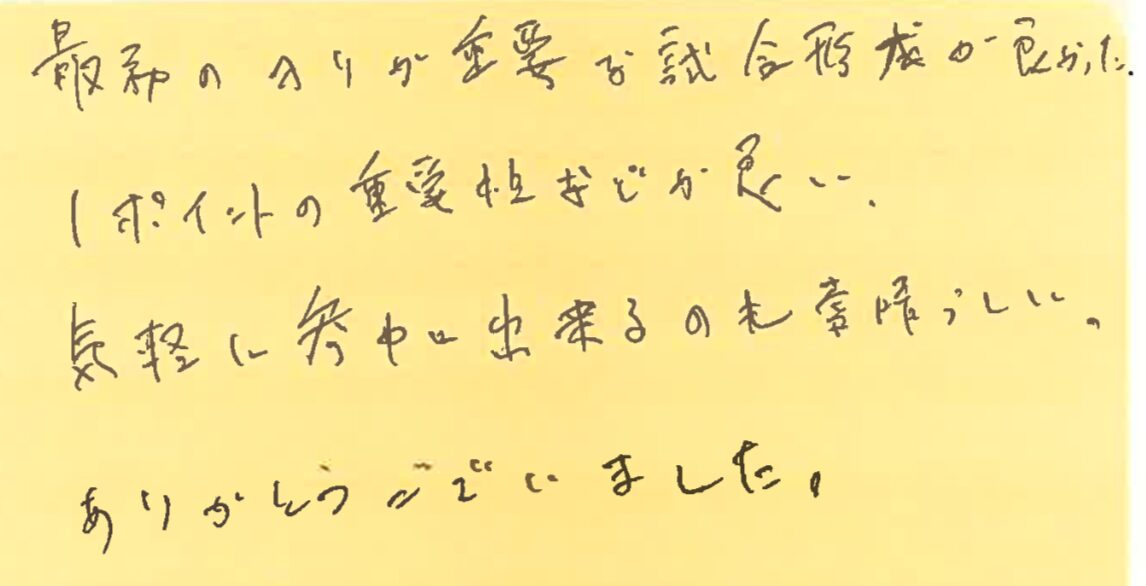 最初の入りが重要な試合形成が良かった.
1ポイントの重要性などが良い.
気軽に参加出来るのも素晴らしい。
ありがとうございました。